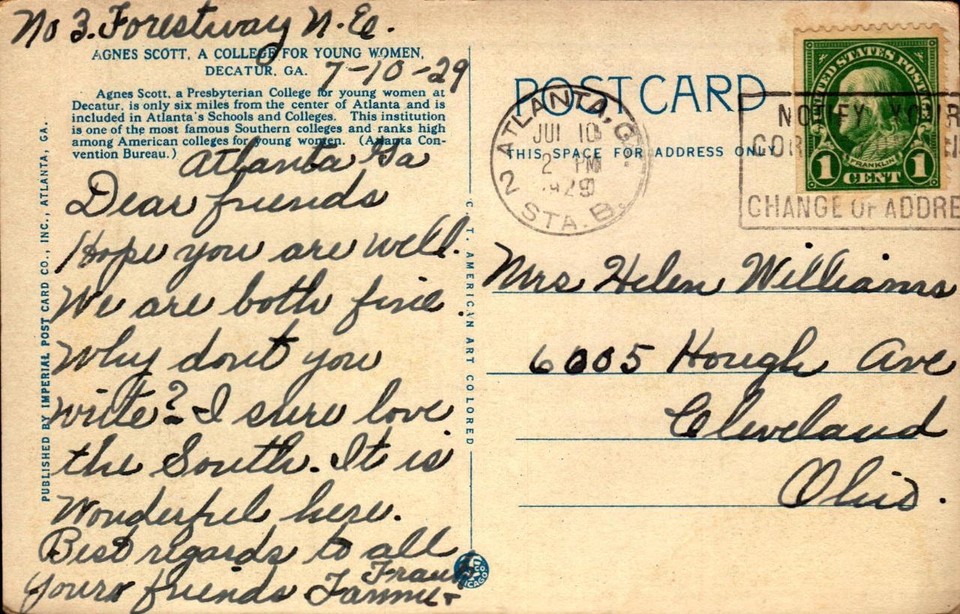 No 3. Forestway N.E.
AGNES SCOTT, A COLLEGE FOR YOUNG WOMEN,
DECATUR, GA.
7-10-29
Agnes Scott, a Presbyterian College for young women at
Decatur, is only six miles from the center of Atlanta and is
included in Atlanta's Schools and Colleges. This institution
is one of the most famous Southern colleges and ranks high
among American colleges for young women. (Atlanta Con-
vention Bureau.)
Atlanta Ga
Dear friends
Hope you are well.
We are both fine.
Why dont you
write? I sure love
the South. It is
Wonderful here.
Best regards to all
Yours friends Fannie +
Frank
PUBLISHED BY IMPERIAL POST CARD CO., INC., ATLANTA, GA.
C. T. AMERICAN ART COLORED
POST CARD
THIS SPACE FOR ADDRESS ONLY
ATLANTA, GA.
JUL 10
2 PM
1929
2 STA. B.
UNITED STATES POSTAGE
FRANKLIN
1 CENT 1
NOTIFY YOUR
COR
CHANGE OF ADDRE
Mrs Helen Williams
6005 Hough Ave
Cleveland
Ohio.